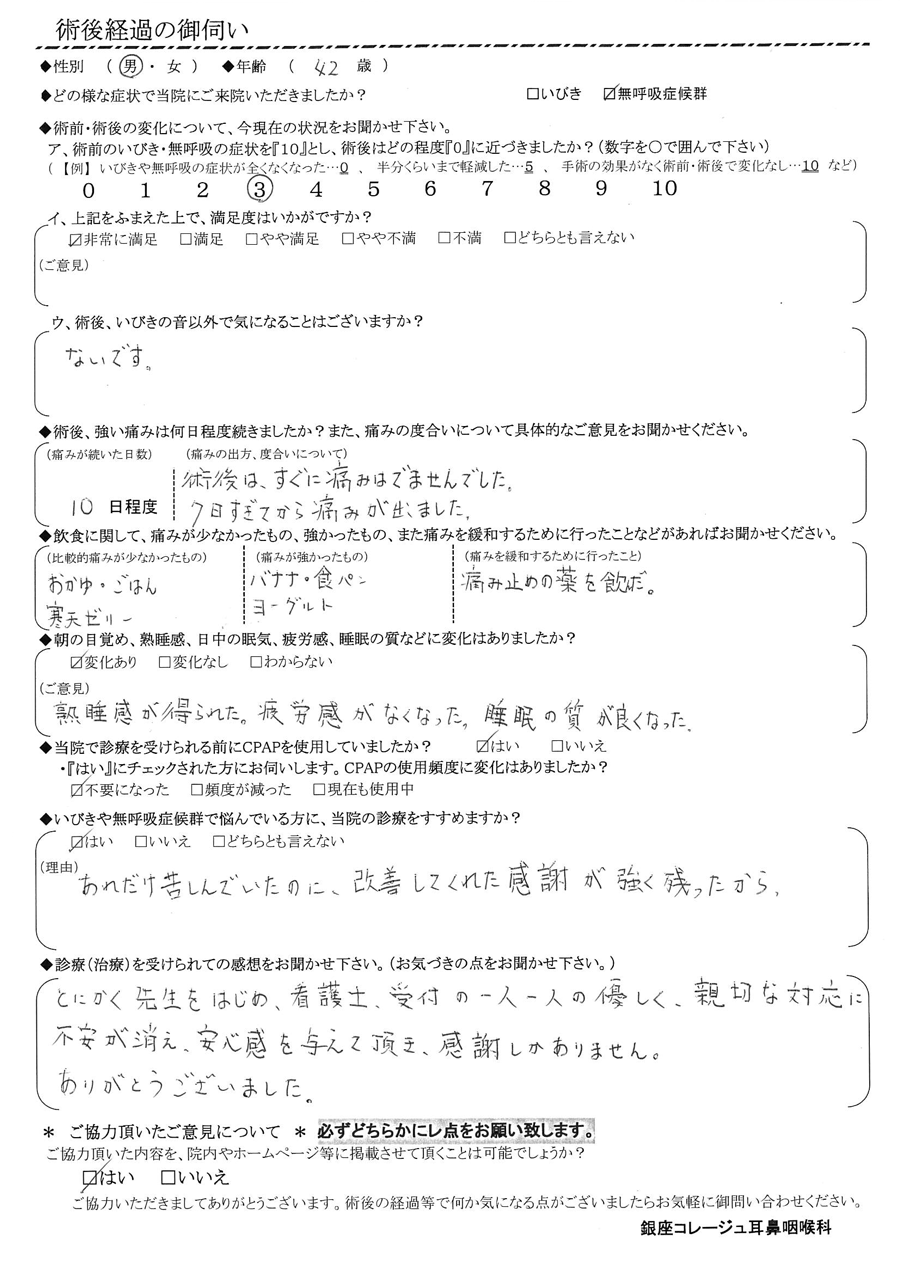 術後経過の御伺い
◆性別 （ 男 ・ 女 ） ◆年齢 （ 42 歳 ）
◆どの様な症状で当院にご来院いただきましたか？ □いびき ☑無呼吸症候群
◆術前・術後の変化について、今現在の状況をお聞かせ下さい。
ア、術前のいびき・無呼吸の症状を『10』とし、術後はどの程度『0』に近づきましたか？（数字を○で囲んで下さい）
（【例】 いびきや無呼吸の症状が全くなくなった…0 、 半分くらいまで軽減した…5 、 手術の効果がなく術前・術後で変化なし…10 など）
0 1 2 ③ 4 5 6 7 8 9 10
イ、上記をふまえた上で、満足度はいかがですか？
☑非常に満足 □満足 □やや満足 □やや不満 □不満 □どちらとも言えない
（ご意見）
ウ、術後、いびきの音以外で気になることはございますか？
ないです。
◆術後、強い痛みは何日程度続きましたか？また、痛みの度合いについて具体的なご意見をお聞かせください。
（痛みが続いた日数） （痛みの出方、度合いについて）
術後は、すぐに痛みはでませんでした。
10 日程度 7日すぎてから痛みが出ました。
◆飲食に関して、痛みが少なかったもの、強かったもの、また痛みを緩和するために行ったことなどがあればお聞かせください。
（比較的痛みが少なかったもの） （痛みが強かったもの） （痛みを緩和するために行ったこと）
おかゆ・ごはん バナナ・食パン 痛み止めの薬を飲だ。
寒天ゼリー ヨーグルト
◆朝の目覚め、熟睡感、日中の眠気、疲労感、睡眠の質などに変化はありましたか？
☑変化あり □変化なし □わからない
（ご意見）
熟睡感が得られた。疲労感がなくなった。睡眠の質が良くなった。
◆当院で診療を受けられる前にCPAPを使用していましたか？ ☑はい □いいえ
・『はい』にチェックされた方にお伺いします。CPAPの使用頻度に変化はありましたか？
☑不要になった □頻度が減った □現在も使用中
◆いびきや無呼吸症候群で悩んでいる方に、当院の診療をすすめますか？
☑はい □いいえ □どちらとも言えない
（理由）
あれだけ苦しんでいたのに、改善してくれた感謝が強く残ったから。
◆診療（治療）を受けられての感想をお聞かせ下さい。（お気づきの点をお聞かせ下さい。）
とにかく先生をはじめ、看護士、受付の一人一人の優しく、親切な対応に
不安が消え、安心感を与えて頂き、感謝しかありません。
ありがとうございました。
＊ ご協力頂いたご意見について ＊ 必ずどちらかにレ点をお願い致します。
ご協力頂いた内容を、院内やホームページ等に掲載させて頂くことは可能でしょうか？
☑はい □いいえ
ご協力いただきましてありがとうございます。術後の経過等で何か気になる点がございましたらお気軽に御問い合わせください。
銀座コレージュ耳鼻咽喉科